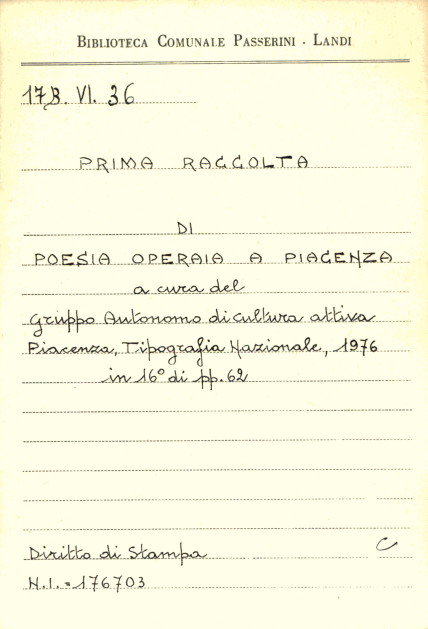 BIBLIOTECA COMUNALE PASSERINI - LANDI
173. VI. 36
PRIMA RACCOLTA
DI
POESIA OPERAIA A PIACENZA
a cura del
Gruppo Autonomo di cultura attiva
Piacenza, Tipografia Nazionale, 1976
in 16° di pp. 62
C
Diritto di Stampa
N.I. = 176703